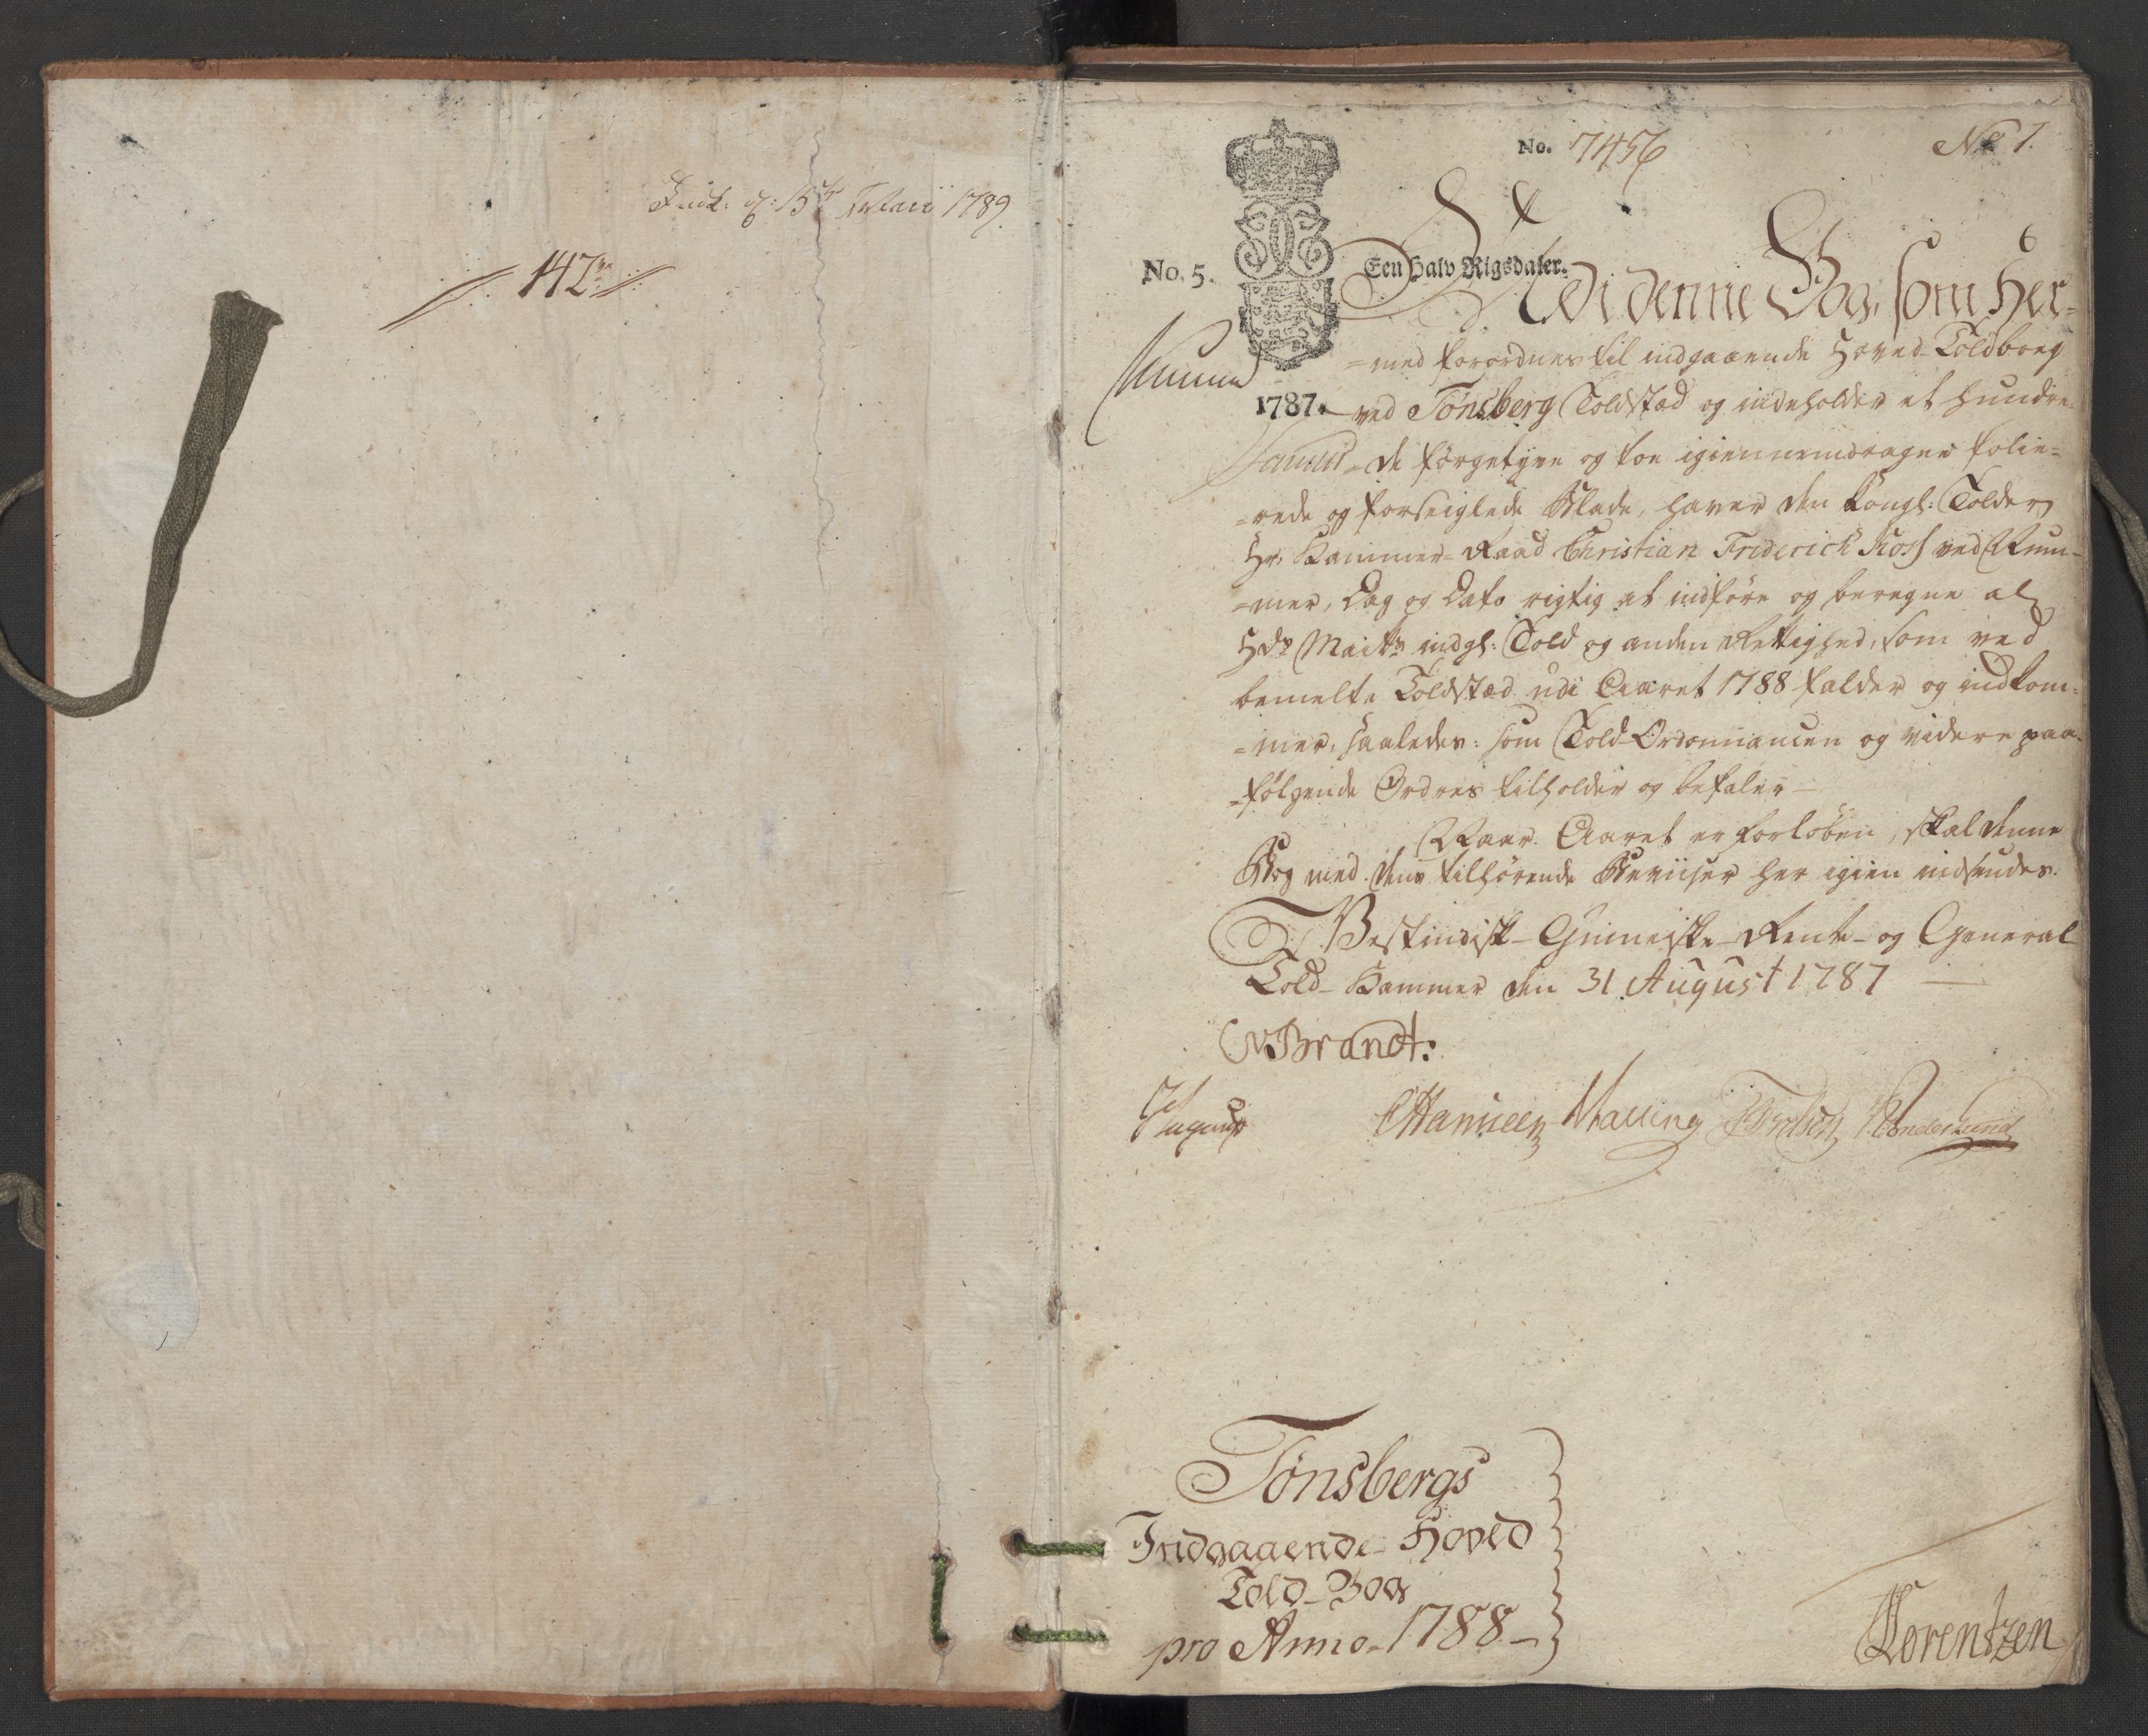 Indk: d: 15de Maii 1789
142
No. 7456
No 1.
6
No. 5.
Een Halv Rigsdaler.
Udi denne Bog, som her=
=med forordnes til indgaaende Hoved-Toldbog
1787.
ved Tønsberg Toldstæd og indeholder et hundre=
=de førgetyve og toe igiennemdragne folie=
=rede og forseiglede Blade, haver den Kongl: Tolder
Hr. Kammer-Raad Christian Friderich ved Num-
=mer, Dag og Dato rigtig at indføre og beregne al
Hds Maits indgl: Told og anden Rettighed, som ved
bemelte Toldstæd udi Aaret 1788 falder og indkom=
=mer, saaledes som Told-Ordonnancen og videre paa=
=følgende Ordres tilholder og befaler
Naar Aaret er forløben, skal denne
Bog med dens tilhørende Beviiser her igien indsendes.
Vestindisk-Guineiske-Rente- og General
Told-Kammer den 31 August 1787
Brandt:
Malling
Lorentzen
Tønsbergs
Indgaaende Hoved
Told-Bog
pro Anno 1788